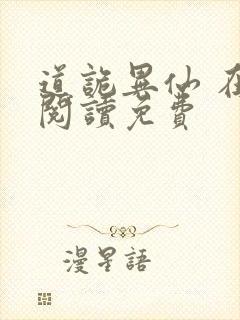 道詭異仙 在
閱讀免費
漫星語